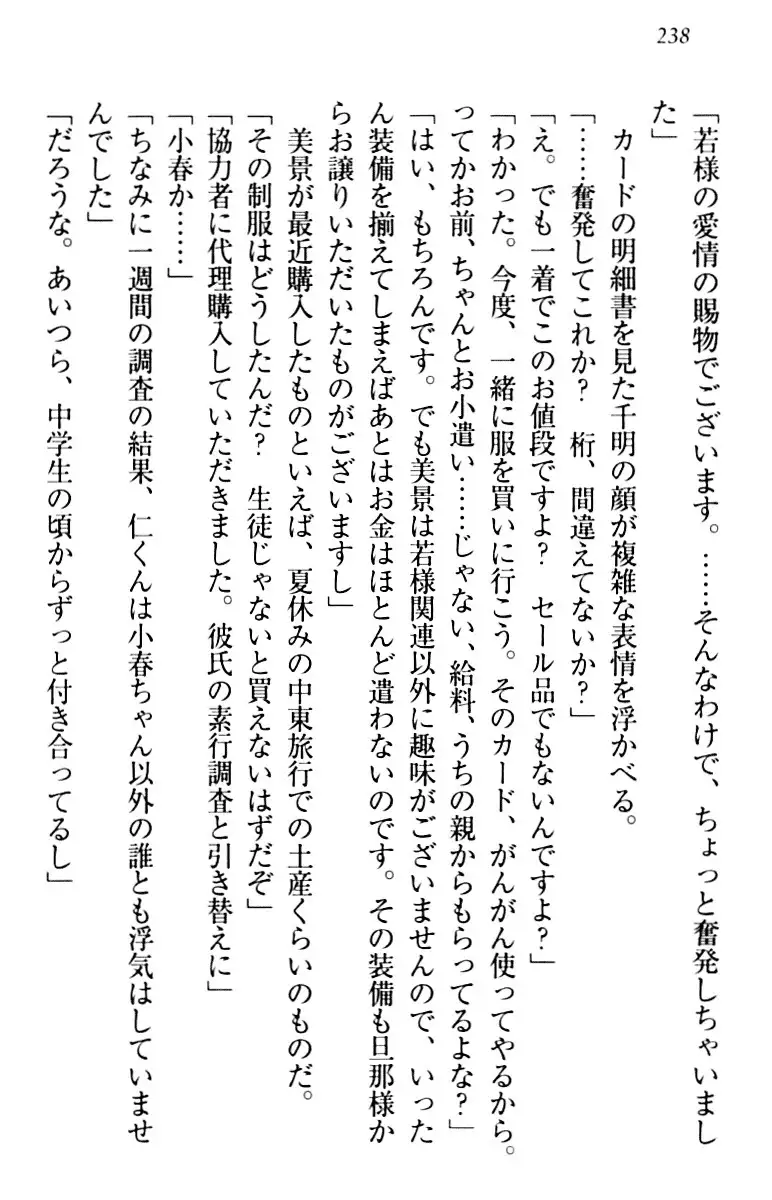 238
「若様の愛情の賜物でございます。……そんなわけで、ちょっと奮発しちゃいまし
た」
　カードの明細書を見た千明の顔が複雑な表情を浮かべる。
「……奮発してこれか？　桁、間違えてないか？」
「え。でも一着でこのお値段ですよ？　セール品でもないんですよ？」
「わかった。今度、一緒に服を買いに行こう。そのカード、がんがん使ってやるから。
ってかお前、ちゃんとお小遣い……じゃない、給料、うちの親からもらってるよな？」
「はい、もちろんです。でも美景は若様関連以外に趣味がございませんので、いった
ん装備を揃えてしまえばあとはお金はほとんど遣わないのです。その装備も旦那様か
らお譲りいただいたものがございますし」
　美景が最近購入したものといえば、夏休みの中東旅行での土産くらいのものだ。
「その制服はどうしたんだ？　生徒じゃないと買えないはずだぞ」
「協力者に代理購入していただきました。彼氏の素行調査と引き替えに」
「小春か……」
「ちなみに一週間の調査の結果、仁くんは小春ちゃん以外の誰とも浮気はしていませ
んでした」
「だろうな。あいつら、中学生の頃からずっと付き合ってるし」